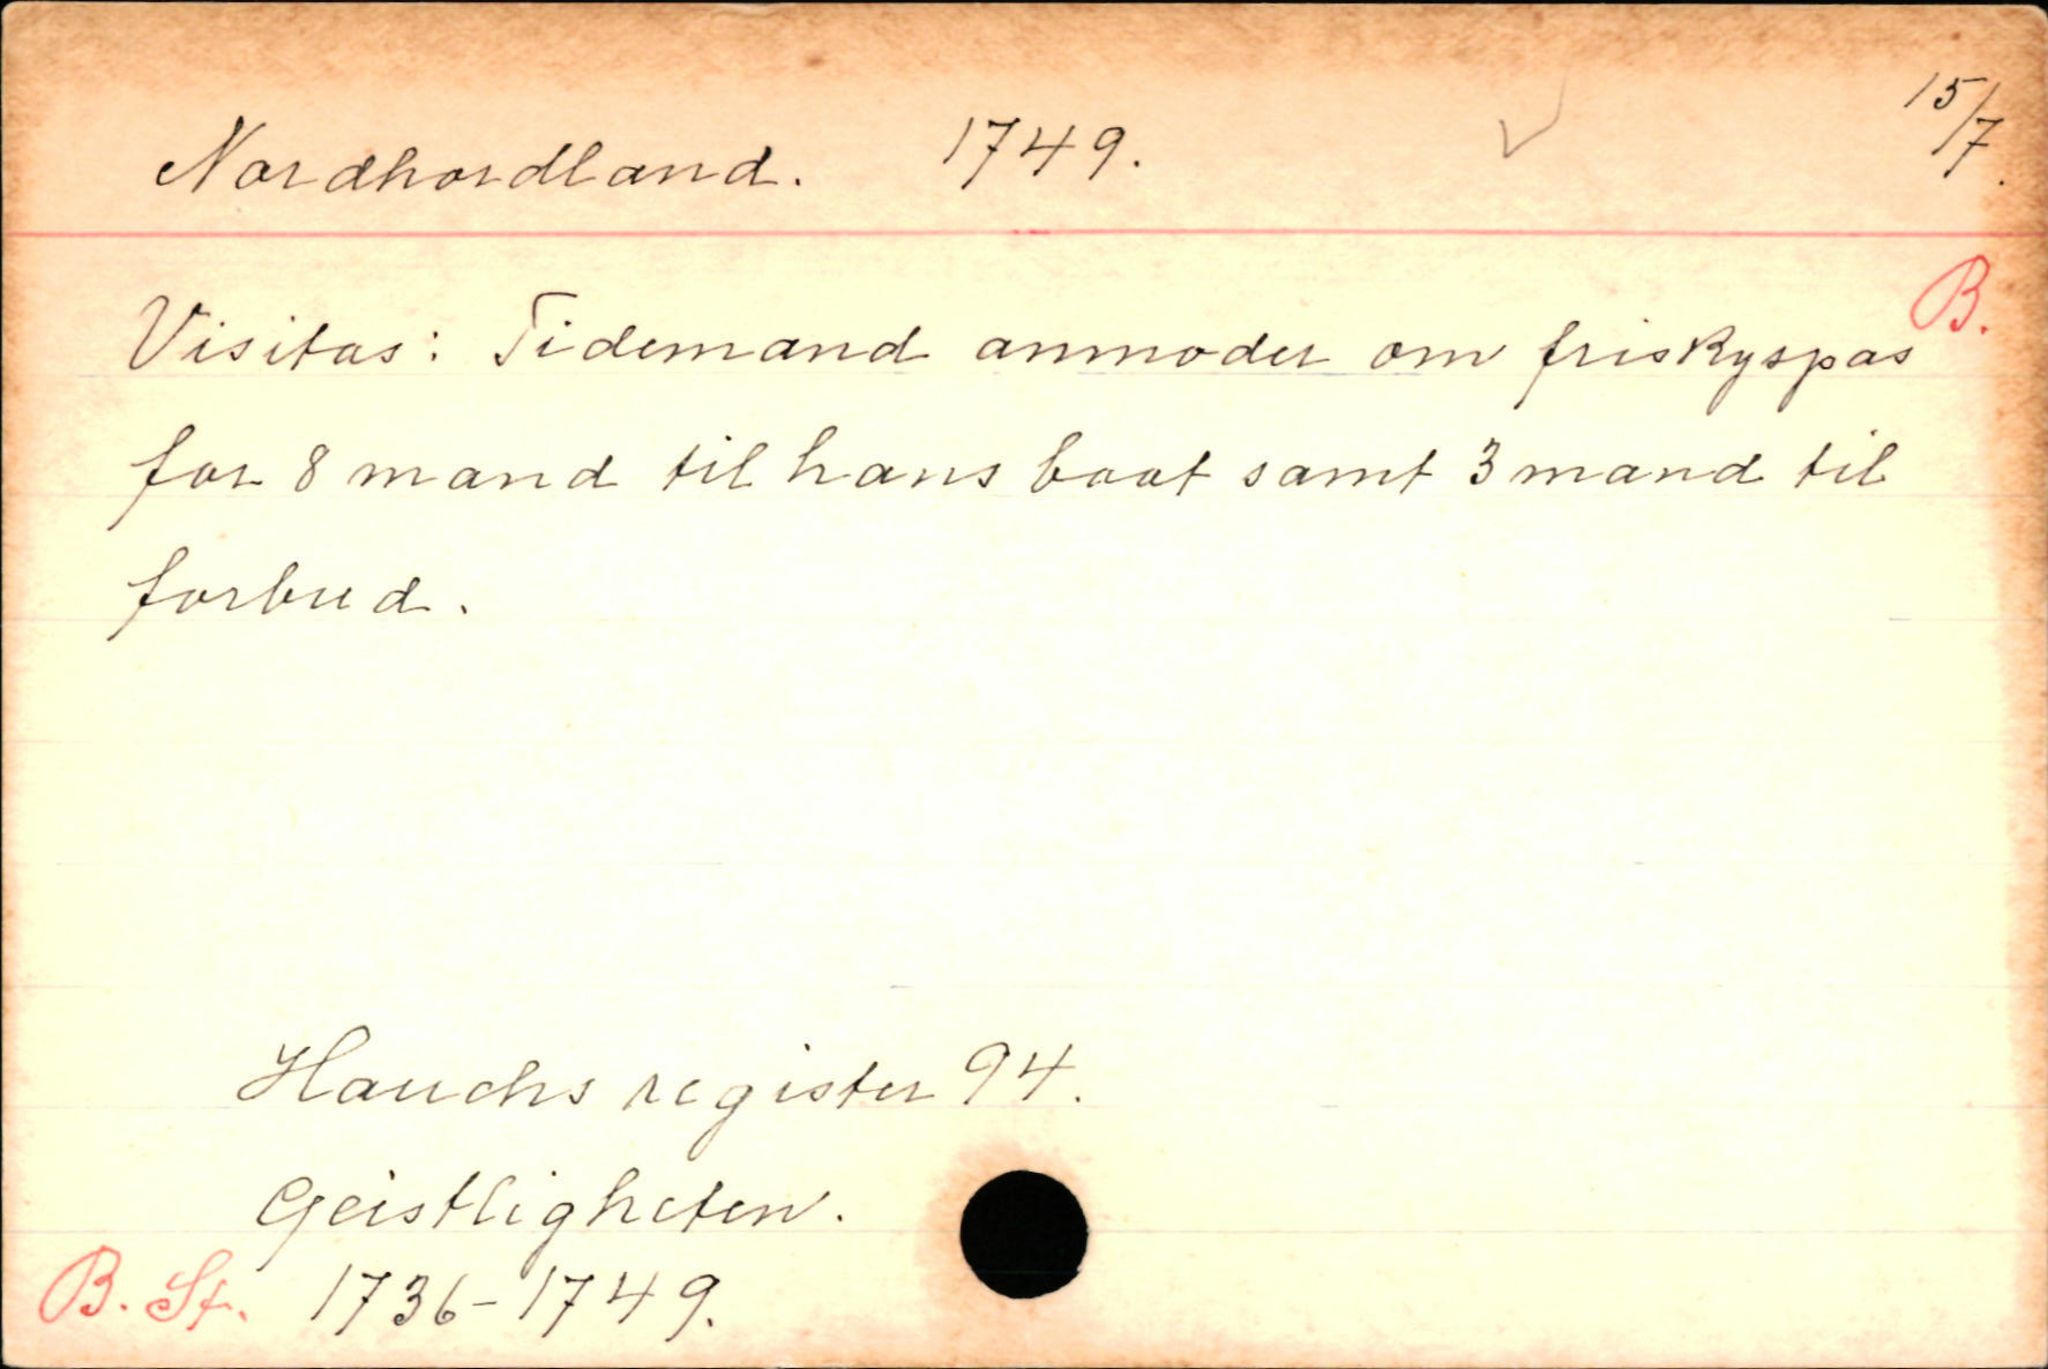 Nordhordland. 1749. 15/7.
B.
Visitas: Tidemand anmoder om friskyspas
for 8 mand til hans baat samt 3 mand til
forbud.
Hauchs register 94.
Geistligheten.
B. St. 1736-1749.